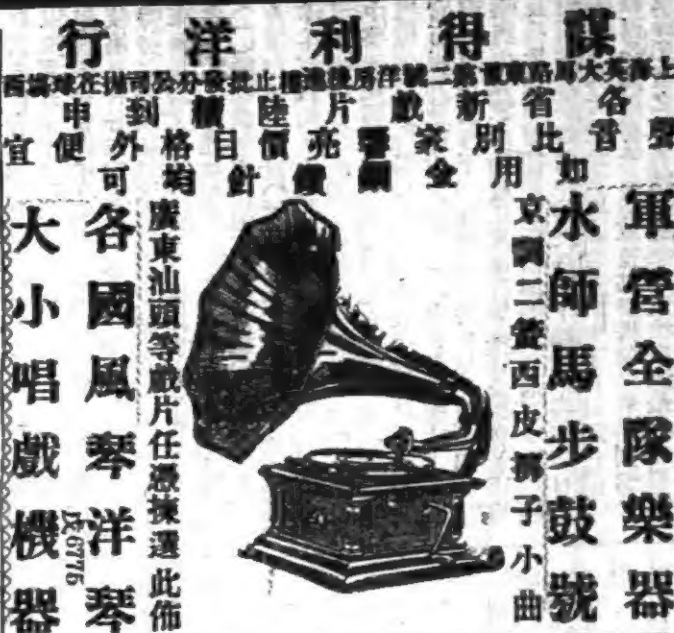 謀得利洋行
上海英大馬路東首第二號洋房後進樓上批發分公司拋在球場西
各省新戲片陸續到申
聲音比別家響亮價目格外便宜
如用金鋼鑽針均可
軍營全隊樂器
水師馬步鼓號
京調二簧西皮梆子小曲
廣東汕頭等戲片任憑揀選此佈
各國風琴洋琴
戊6775
大小唱戲機器